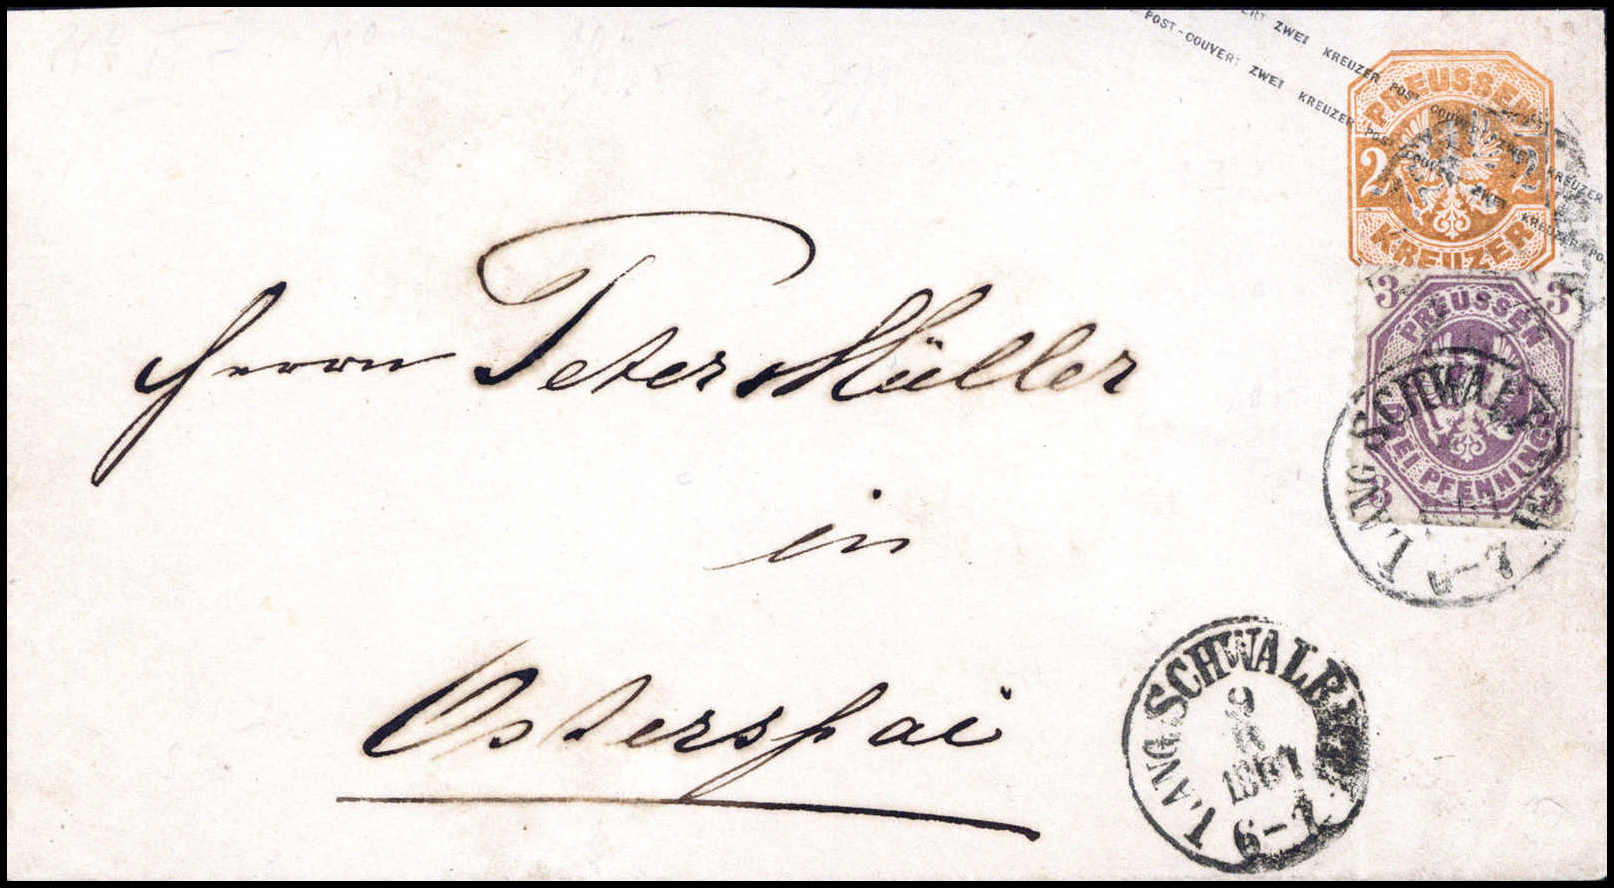 POST-COUVERT ZWEI KREUZER POST COUVERT ZWEI KREUZER
POST-COUVERT ZWEI KREUZER POST COUVERT ZWEI KREUZER PO
PREUSSEN
2 2
KREUZER
3 3
PREUSSEN
DREI PFENNINGE
3 3
LANGSCHWALB
Herrn Peter Müller
in
Osterspai
LANGSCHWALBACH
9
8
1867
6-7